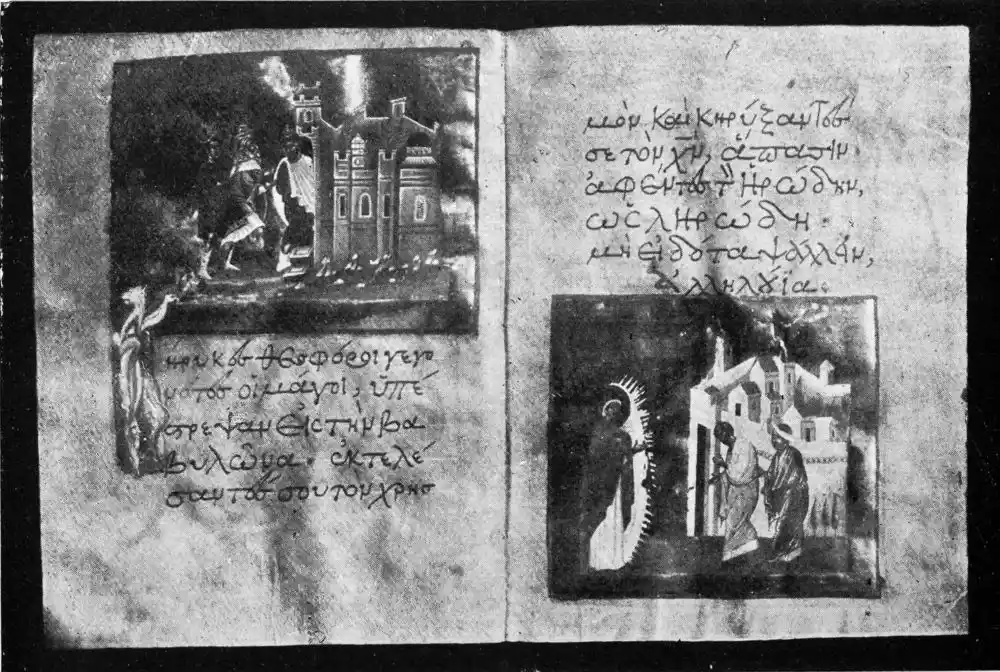 Κήρυκες θεοφόροι γεγο
νότες οἱ μάγοι, ὑπέ
στρεψαν εἰς τὴν βα
βυλῶνα· ἐκτελέ
σαντές σου τὸν χρησ
μὸν καὶ κηρύξαντές
σε τὸν χ̅ν̅, ἅπασιν
ἀφέντες τ̀ Ἡρώδην,
ὡς ληρώδη·
μὴ εἰδότα ψάλλειν,
Ἀλληλούϊα·